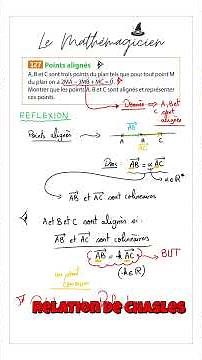 Le Mathémagicien
127 Points alignés
A, B et C sont trois points du plan tels que pour tout point M
du plan on a 2MA − 3MB + MC = 0.
Montrer que les points A, B et C sont alignés et représenter
ces points.
Dessin → A, B et
C sont
alignés
REFLEXION:
AB
Points alignés
A B C
AC
Donc : AB = α AC
α ∈ R*
AB et AC sont colinéaires
A et B et C sont alignés si:
AB et AC sont colinéaires
AB = k AC → BUT
(k ∈ R)
un point
commun
RELATION DE CHASLES